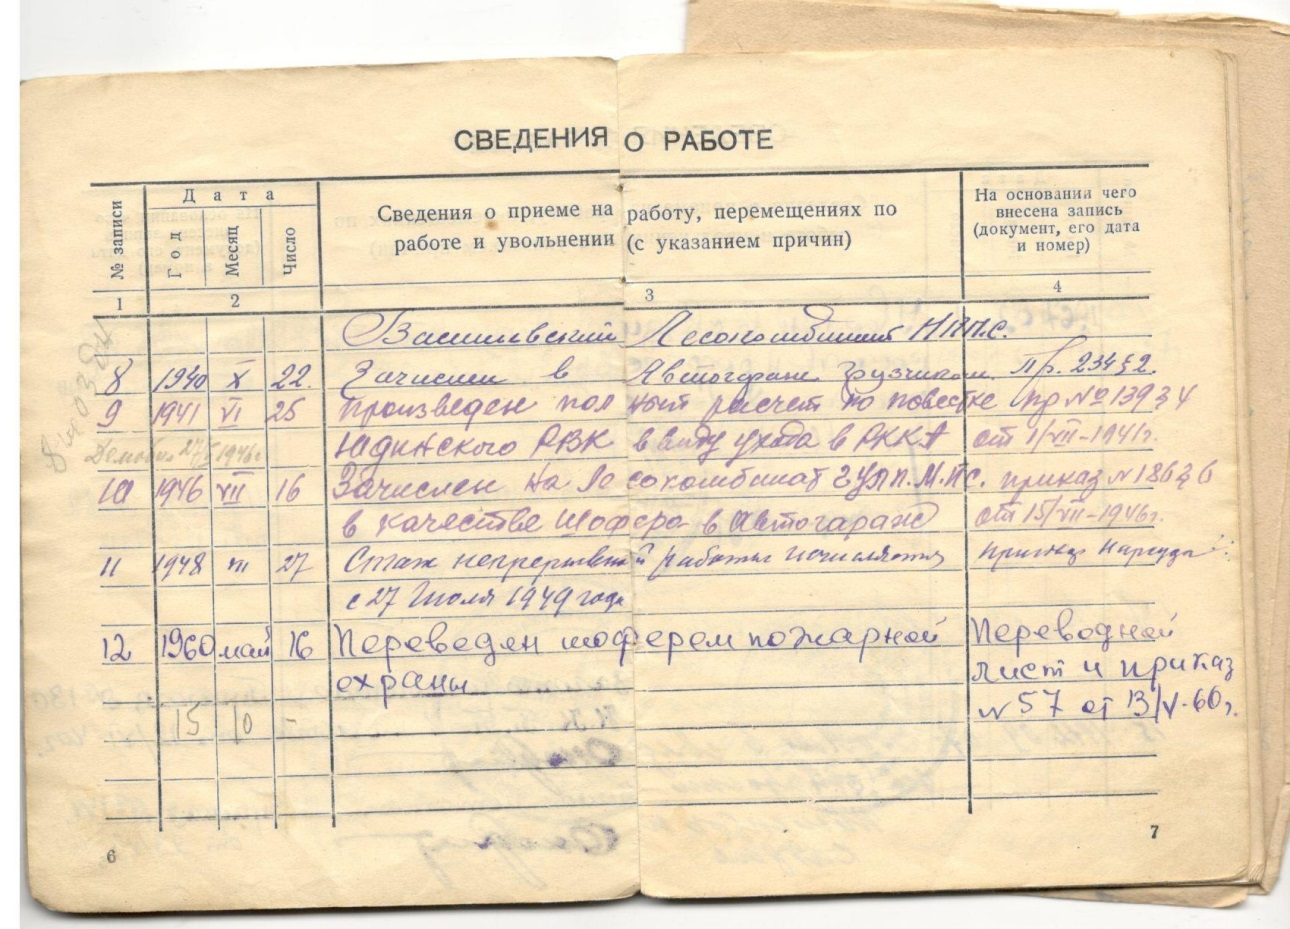 СВЕДЕНИЯ О РАБОТЕ
№ записи
Дата
Год
Месяц
Число
Сведения о приеме на работу, перемещениях по
работе и увольнении (с указанием причин)
На основании чего
внесена запись
(документ, его дата
и номер)
1 2 3 4
Васильевский Лесокомбинат Н.П.С.
8 1940 X 22. Зачислен в Автогараж грузчиком. Пр. 234 § 2.
9 1941 VI 25 Произведен полный расчет по повестке пр № 139 § 4
Юдинского РВК ввиду ухода в РККА от 1/VII-1941г.
Демобил 27/V 1946г
10 1946 VII 16 Зачислен на Лесокомбинат ГУЛП.М.ПС. приказ № 186 § 6
в качестве Шофера в Автогараж от 15/VII-1946г.
11 1948 III 27 Стаж непрерывной работы исчисляется
с 27 Июля 1949 года
12 1960 май 16 Переведен шофером пожарной Переводной
охраны лист и приказ
№ 57 от 13/V-60г.
15 10 -
6
7